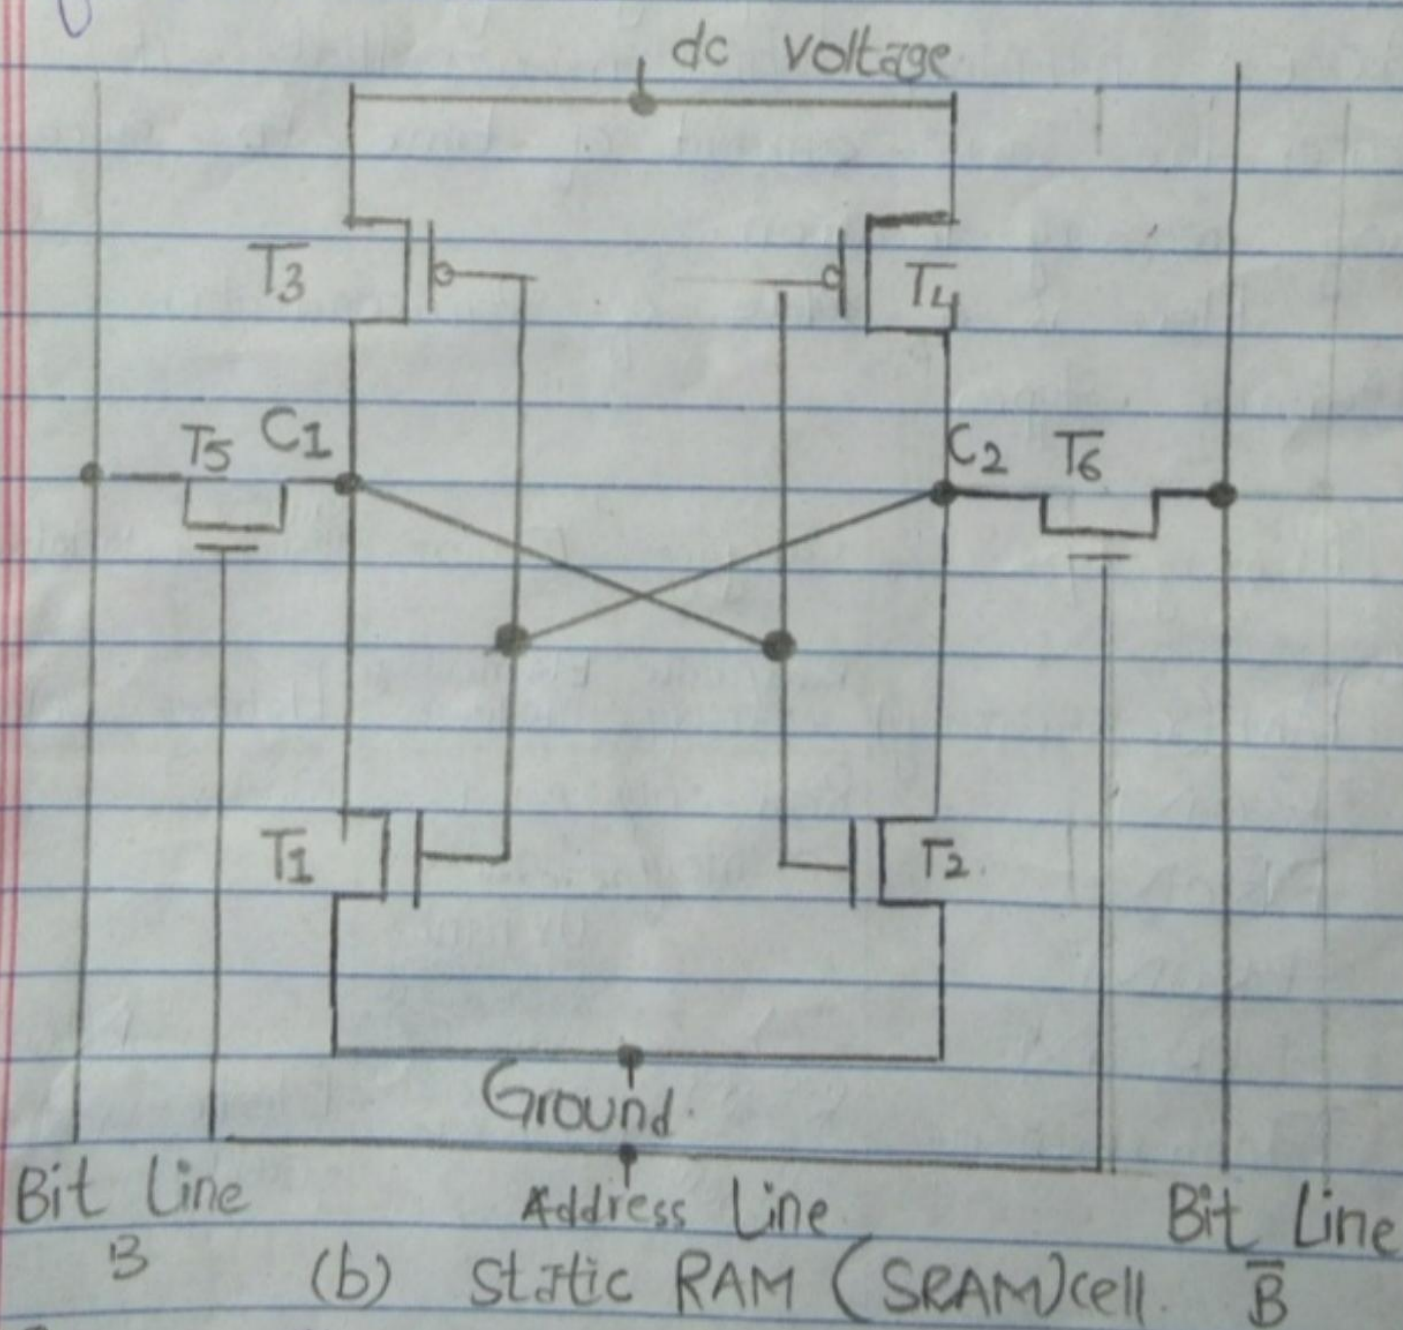 dc voltage
T3
T4
T5 C1
C2 T6
T1
T2.
Ground.
Bit Line
Address Line
Bit Line
B
B̅
(b) Static RAM (SRAM)cell.